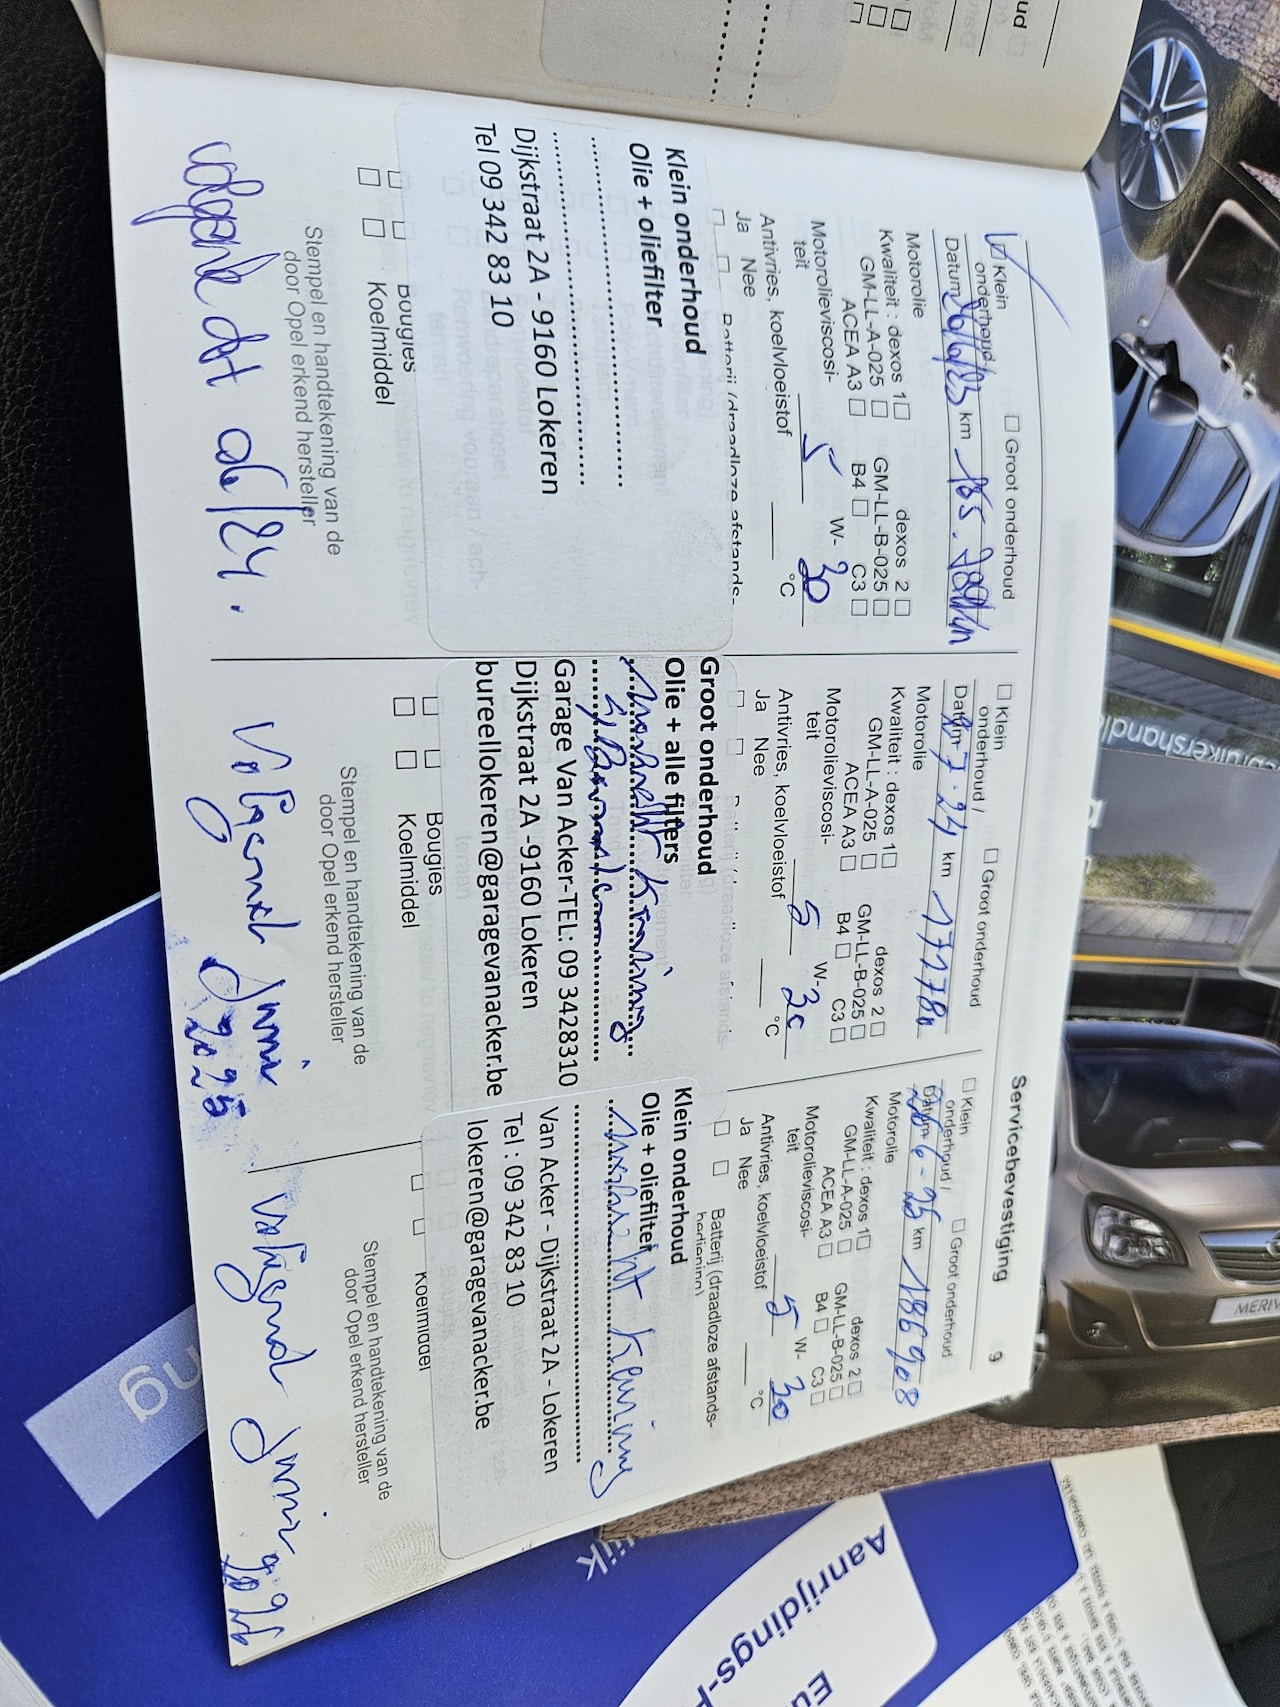 Servicebevestiging
9
Klein onderhoud /
Groot onderhoud
Datum 26/6/23 km
Motorolie
Kwaliteit : dexos 1
dexos 2
GM-LL-A-025
GM-LL-B-025
ACEA A3
B4
C3
Motorolieviscosi-
teit
5 W- 30
Antivries, koelvloeistof
°C
Ja Nee
Klein onderhoud
Olie + oliefilter
Dijkstraat 2A - 9160 Lokeren
Tel 09 342 83 10
Bougies
Koelmiddel
Stempel en handtekening van de
door Opel erkend hersteller
volgende 06/24.
Klein
onderhoud /
Groot onderhoud
Datum 7.24 km
Motorolie
Kwaliteit : dexos 1
dexos 2
GM-LL-A-025
GM-LL-B-025
ACEA A3
B4
C3
Motorolieviscosi-
teit
5 W- 30
Antivries, koelvloeistof
°C
Ja Nee
Groot onderhoud
Olie + alle filters
Garage Van Acker-TEL: 09 3428310
Dijkstraat 2A -9160 Lokeren
bureellokeren@garagevanacker.be
Bougies
Koelmiddel
Stempel en handtekening van de
door Opel erkend hersteller
Volgend Juni
2025
Klein
onderhoud /
Groot onderhoud
Datum 26-6-25 km 186908
Motorolie
Kwaliteit : dexos 1
dexos 2
GM-LL-A-025
GM-LL-B-025
ACEA A3
B4
C3
Motorolieviscosi-
teit
5 W- 30
Antivries, koelvloeistof
°C
Ja Nee
Batterij (draadloze afstands-
bediening)
Klein onderhoud
Olie + oliefilter
Nazicht Keuring
Van Acker - Dijkstraat 2A - Lokeren
Tel : 09 342 83 10
lokeren@garagevanacker.be
Koelmiddel
Stempel en handtekening van de
door Opel erkend hersteller
Volgend Juni 2026
Aanrijdings-